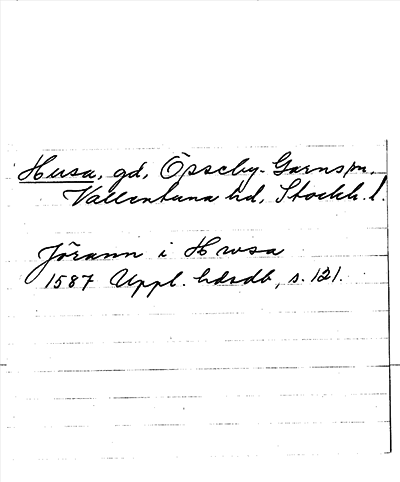 Husa, gd, Össeby-Garns sn,
Vallentuna hd, Stockh. l.
Jörann i Hwsa
1587 Uppl. hdsdb, s. 121.